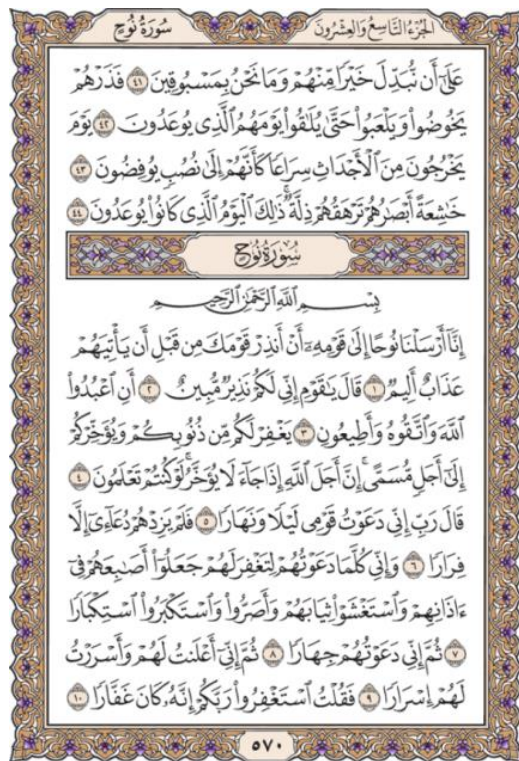 الجزء التاسع والعشرون
سورة نوح
عَلَىٰٓ أَن نُّبَدِّلَ خَيۡرٗا مِّنۡهُمۡ وَمَا نَحۡنُ بِمَسۡبُوقِينَ ٤١ فَذَرۡهُمۡ
يَخُوضُواْ وَيَلۡعَبُواْ حَتَّىٰ يُلَٰقُواْ يَوۡمَهُمُ ٱلَّذِي يُوعَدُونَ ٤٢ يَوۡمَ
يَخۡرُجُونَ مِنَ ٱلۡأَجۡدَاثِ سِرَاعٗا كَأَنَّهُمۡ إِلَىٰ نُصُبٖ يُوفِضُونَ ٤٣
خَٰشِعَةً أَبۡصَٰرُهُمۡ تَرۡهَقُهُمۡ ذِلَّةٞۚ ذَٰلِكَ ٱلۡيَوۡمُ ٱلَّذِي كَانُواْ يُوعَدُونَ ٤٤
سُورَةُ نُوحٍ
بِسۡمِ ٱللَّهِ ٱلرَّحۡمَٰنِ ٱلرَّحِيمِ
إِنَّآ أَرۡسَلۡنَا نُوحًا إِلَىٰ قَوۡمِهِۦٓ أَنۡ أَنذِرۡ قَوۡمَكَ مِن قَبۡلِ أَن يَأۡتِيَهُمۡ
عَذَابٌ أَلِيمٞ ١ قَالَ يَٰقَوۡمِ إِنِّي لَكُمۡ نَذِيرٞ مُّبِينٌ ٢ أَنِ ٱعۡبُدُواْ
ٱللَّهَ وَٱتَّقُوهُ وَأَطِيعُونِ ٣ يَغۡفِرۡ لَكُم مِّن ذُنُوبِكُمۡ وَيُؤَخِّرۡكُمۡ
إِلَىٰٓ أَجَلٖ مُّسَمًّىۚ إِنَّ أَجَلَ ٱللَّهِ إِذَا جَآءَ لَا يُؤَخَّرُۚ لَوۡ كُنتُمۡ تَعۡلَمُونَ ٤
قَالَ رَبِّ إِنِّي دَعَوۡتُ قَوۡمِي لَيۡلٗا وَنَهَارٗا ٥ فَلَمۡ يَزِدۡهُمۡ دُعَآءِيٓ إِلَّا
فِرَارٗا ٦ وَإِنِّي كُلَّمَا دَعَوۡتُهُمۡ لِتَغۡفِرَ لَهُمۡ جَعَلُوٓاْ أَصَٰبِعَهُمۡ فِيٓ
ءَاذَانِهِمۡ وَٱسۡتَغۡشَوۡاْ ثِيَابَهُمۡ وَأَصَرُّواْ وَٱسۡتَكۡبَرُواْ ٱسۡتِكۡبَارٗا
٧ ثُمَّ إِنِّي دَعَوۡتُهُمۡ جِهَارٗا ٨ ثُمَّ إِنِّيٓ أَعۡلَنتُ لَهُمۡ وَأَسۡرَرۡتُ
لَهُمۡ إِسۡرَارٗا ٩ فَقُلۡتُ ٱسۡتَغۡفِرُواْ رَبَّكُمۡ إِنَّهُۥ كَانَ غَفَّارٗا ١٠
٥٧٠